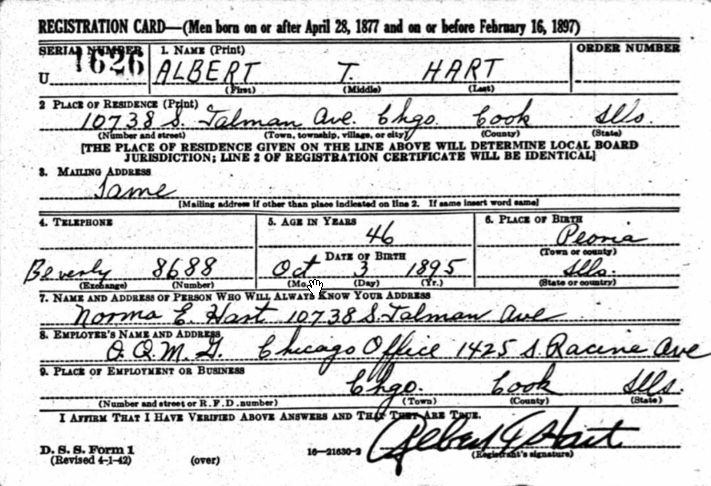 REGISTRATION CARD—(Men born on or after April 28, 1877 and on or before February 16, 1897)
SERIAL NUMBER 1. NAME (Print) ORDER NUMBER
U 1626 ALBERT T. HART
(First) (Middle) (Last)
2 PLACE OF RESIDENCE (Print)
10738 S. Talman Ave. Chgo. Cook Ills.
(Number and street) (Town, township, village, or city) (County) (State)
[THE PLACE OF RESIDENCE GIVEN ON THE LINE ABOVE WILL DETERMINE LOCAL BOARD
JURISDICTION; LINE 2 OF REGISTRATION CERTIFICATE WILL BE IDENTICAL]
3. MAILING ADDRESS
Same
[Mailing address if other than place indicated on line 2. If same insert word same]
4. TELEPHONE 5. AGE IN YEARS 6. PLACE OF BIRTH
46 Peoria
DATE OF BIRTH (Town or county)
Beverly 8688 Oct 3 1895 Ills.
(Exchange) (Number) (Mo.) (Day) (Yr.) (State or country)
7. NAME AND ADDRESS OF PERSON WHO WILL ALWAYS KNOW YOUR ADDRESS
Norma E. Hart 10738 S. Talman Ave
8. EMPLOYER'S NAME AND ADDRESS
O.Q.M.G. Chicago Office 1425 S. Racine Ave
9. PLACE OF EMPLOYMENT OR BUSINESS
Chgo. Cook Ills.
(Number and street or R. F. D. number) (Town) (County) (State)
I AFFIRM THAT I HAVE VERIFIED ABOVE ANSWERS AND THAT THEY ARE TRUE.
D. S. S. Form 1
(Revised 4-1-42) (over) 16—21630-2 Albert T Hart
(Registrant's signature)